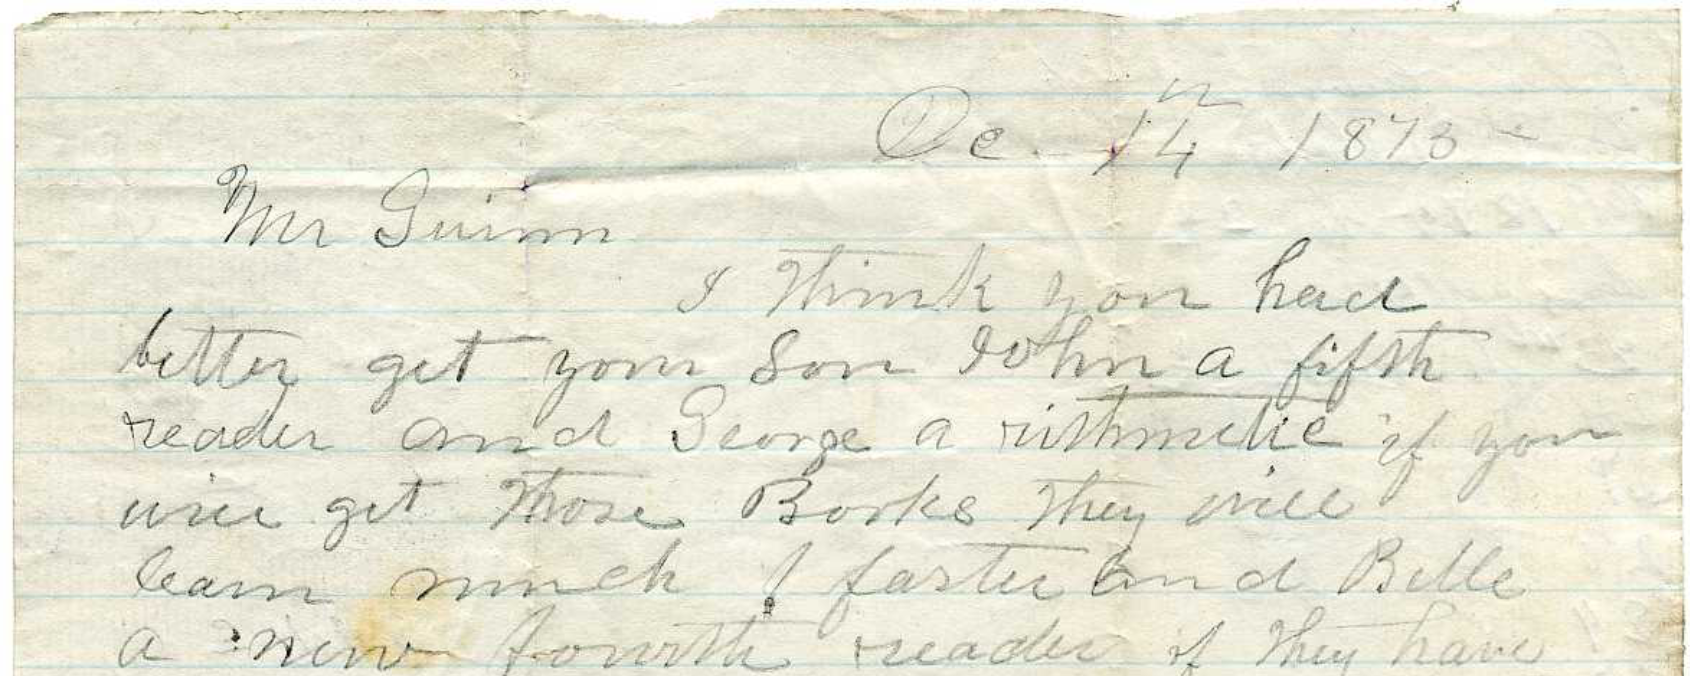 De. 14th 1873
Mr Guinn
I think you had
better get your Son John a fifth
reader and George a rithmetic if you
will get those Books they will
learn much faster and Belle
a new fourth reader if they have